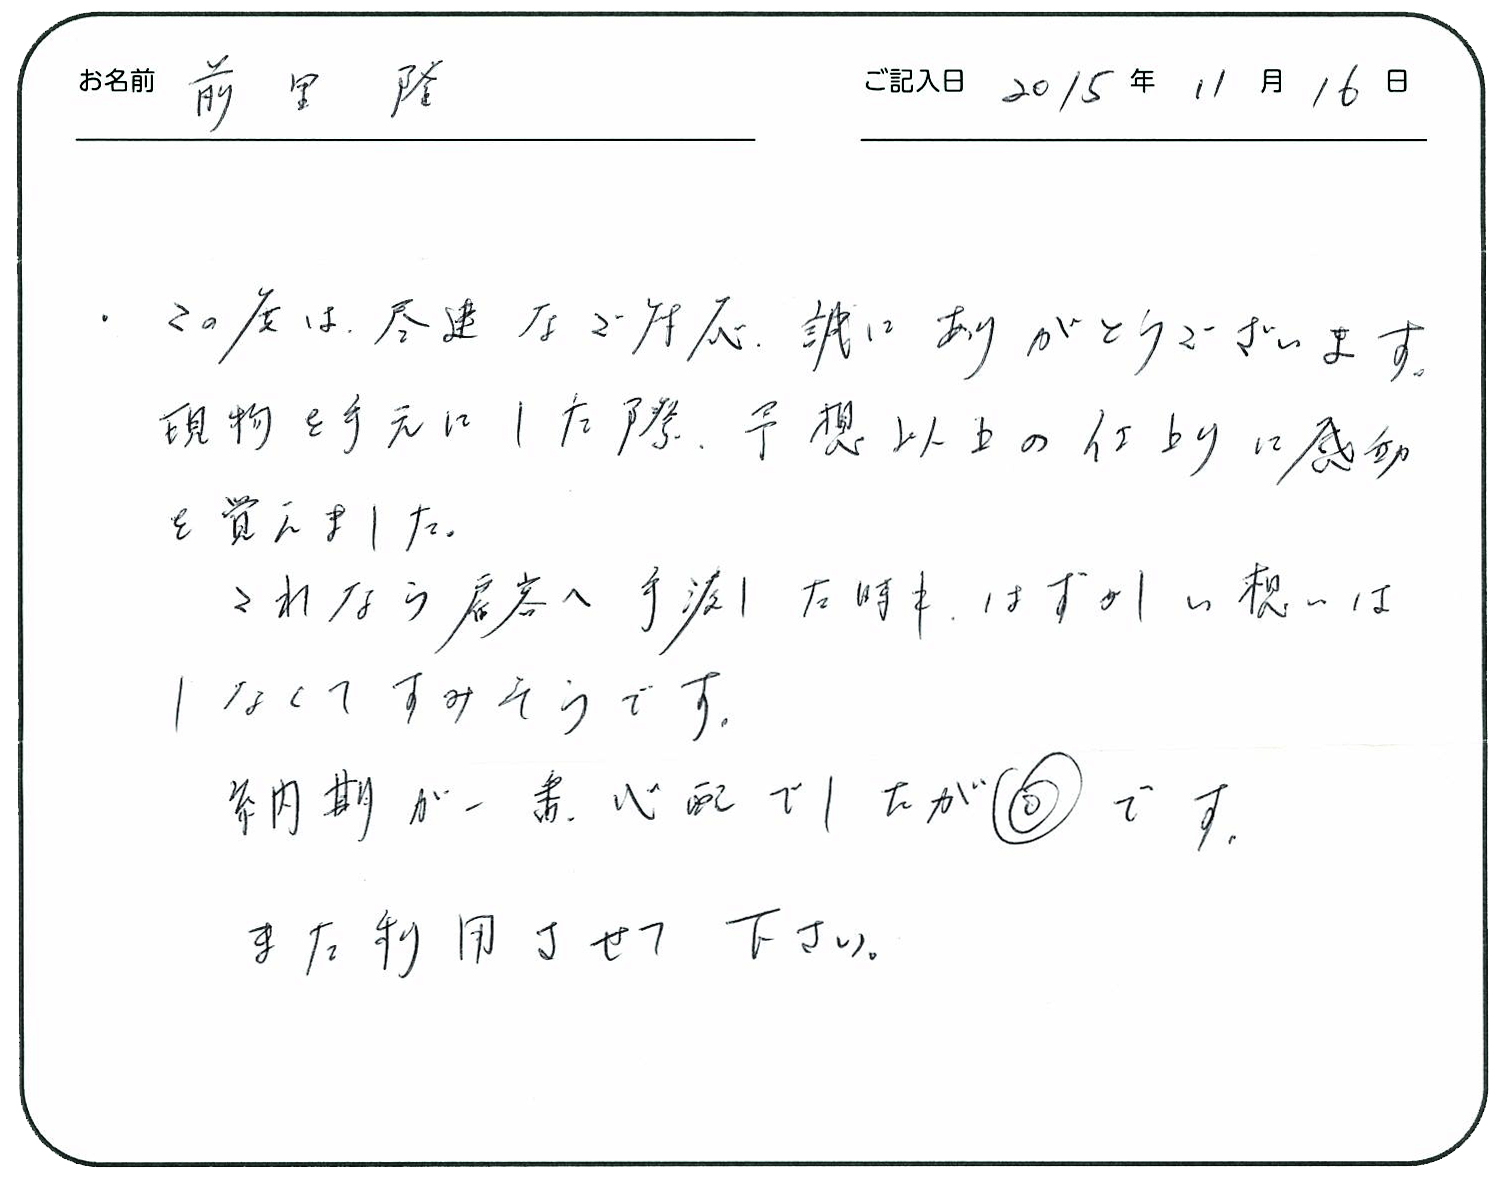 お名前 前里 隆 ご記入日 2015年 11月 16日
・この度は、尽速なご対応、誠にありがとうございます。
現物を手元にした際、予想以上の仕上りに感動
を覚えました。
これなら顧客へ手渡した時も、はずかしい想いは
しなくてすみそうです。
納期が一番、心配でしたが◎です。
また利用させて下さい。